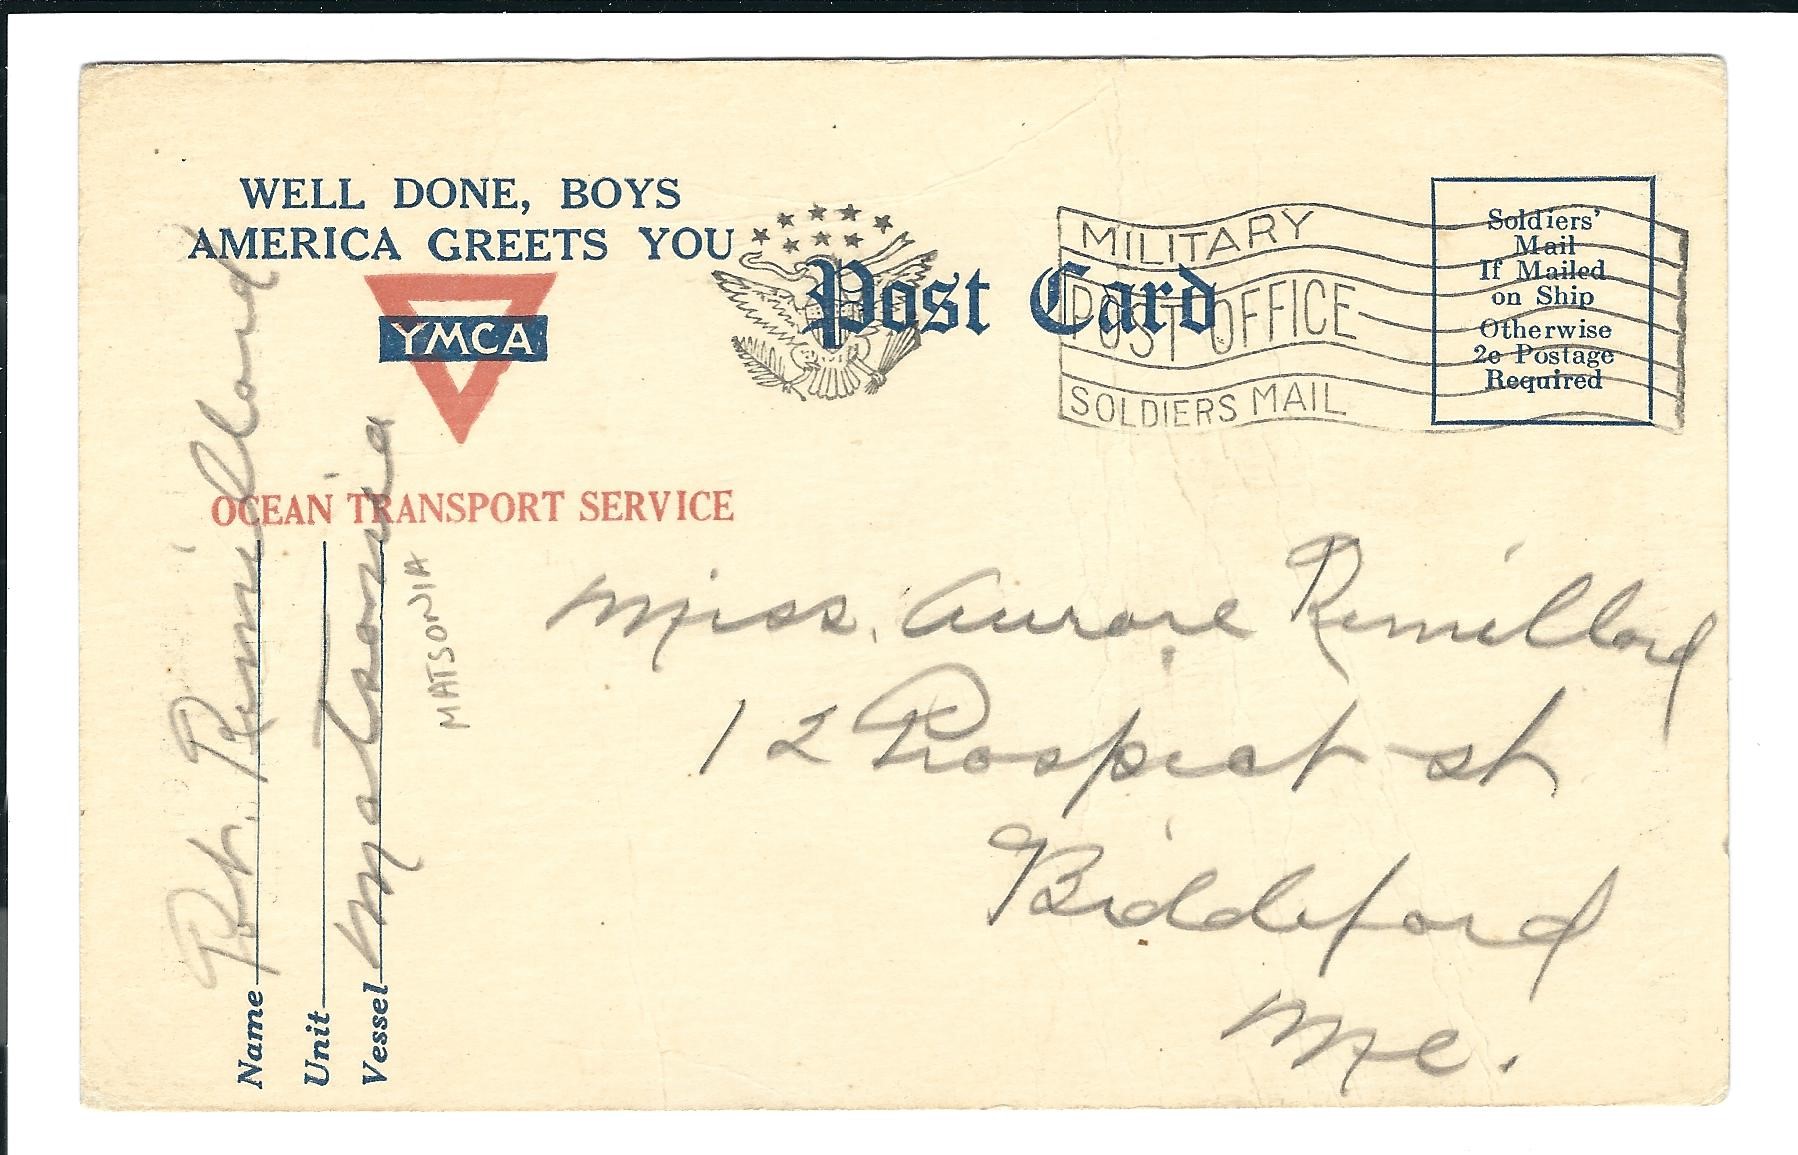 WELL DONE, BOYS
AMERICA GREETS YOU
YMCA
OCEAN TRANSPORT SERVICE
Post Card
MILITARY
POST OFFICE
SOLDIERS MAIL
Soldiers'
Mail
If Mailed
on Ship
Otherwise
2c Postage
Required
Name Pvt. Remillard
Unit
Vessel Matsonia
MATSONIA
Miss. Aurore Remillard
12 Prospect st
Biddeford
Me.